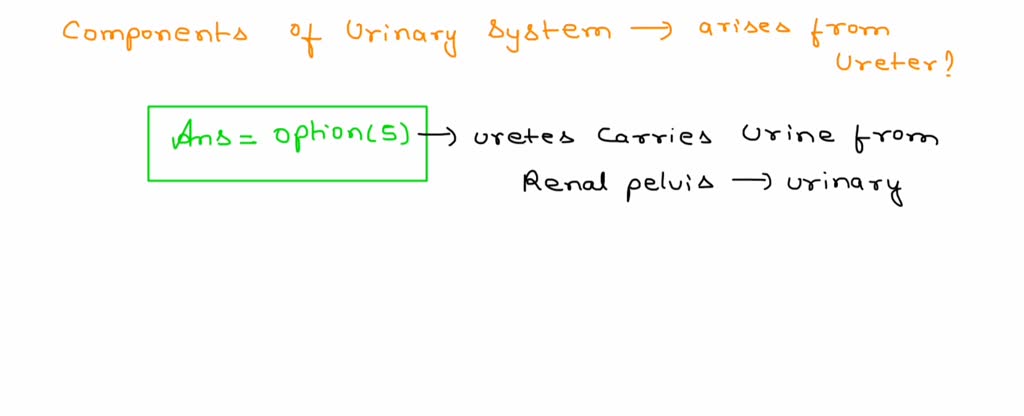 Components of Urinary System → arises from
Ureter?
Ans = option(5) → uretes carries urine from
Renal pelvis → urinary